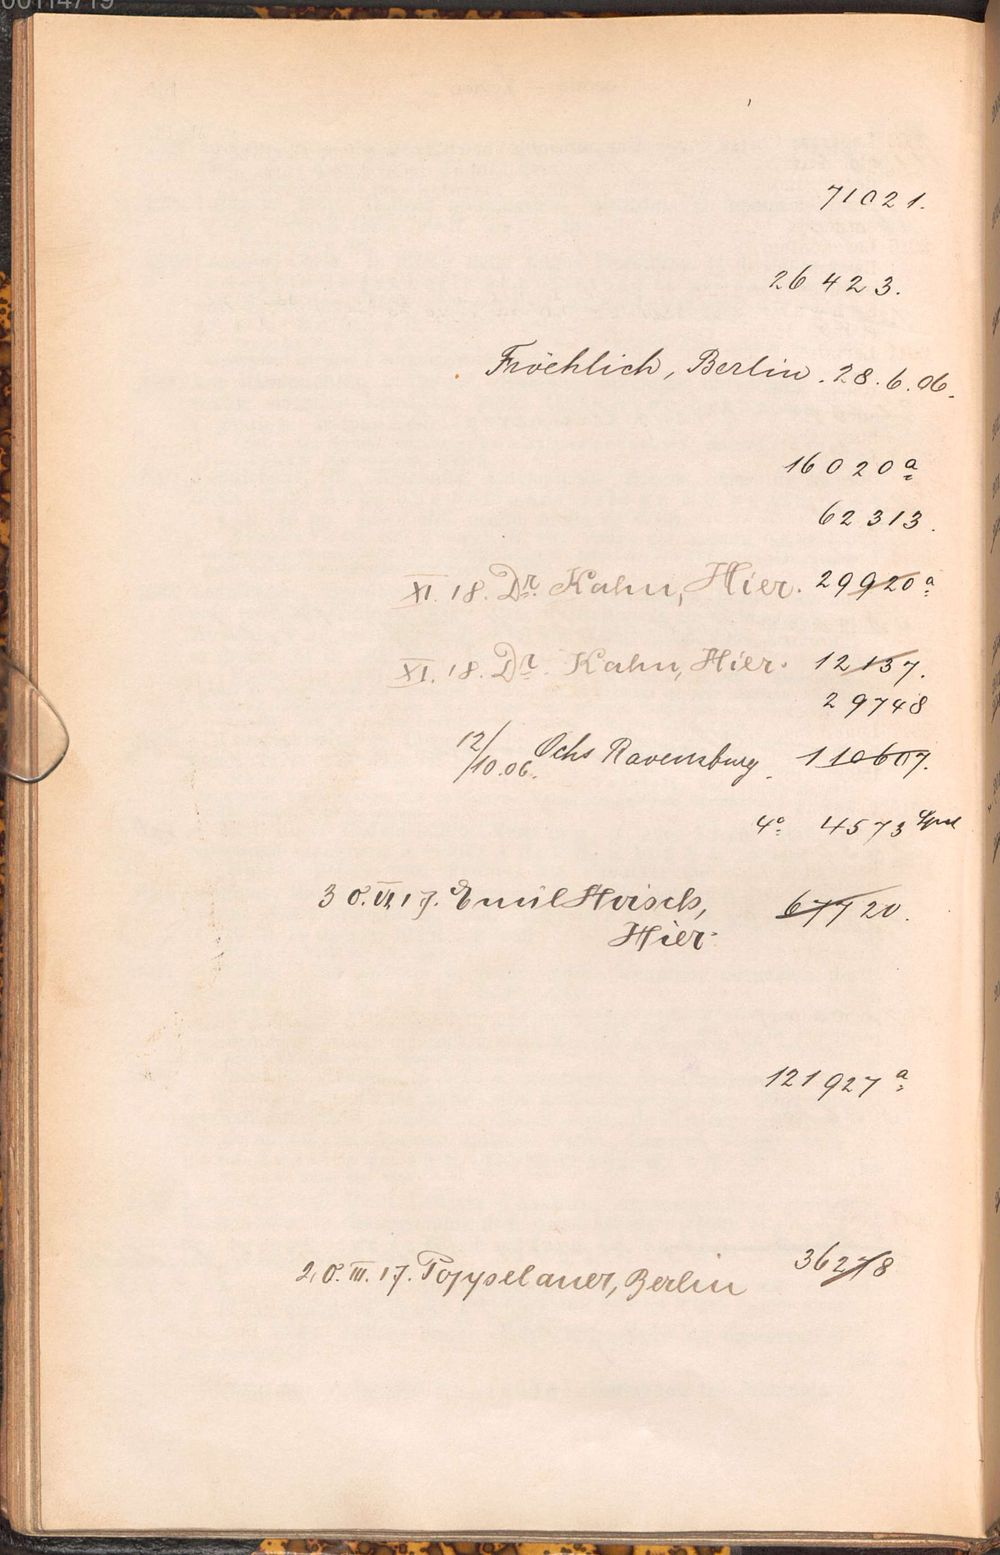 00114719
71021.
26423.
Fröehlich, Berlin. 28.6.06.
16020 a
62313.
XI. 18. Dr. Kahn, Hier. 29920 a
XI. 18. Dr. Kahn, Hier. 12137.
29748
12/10.06. Ochs Ravensburg. 110607.
4° 4573
30. VI. 17. Emil Hirsch, 67720.
Hier.
121927 a
20. III. 17. Poppelauer, Berlin 36278